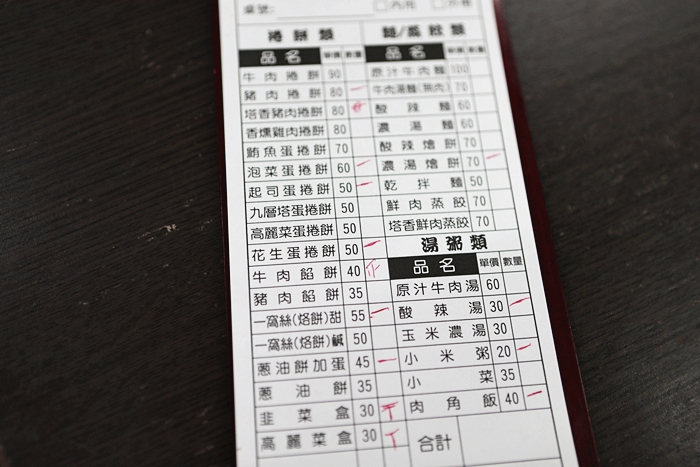 桌號:
內用
外帶
捲餅類
品名 單價 數量
牛肉捲餅 90
豬肉捲餅 80 一
塔香豬肉捲餅 80
香燻雞肉捲餅 80
鮪魚蛋捲餅 70
泡菜蛋捲餅 60 一
起司蛋捲餅 50 一
九層塔蛋捲餅 50
高麗菜蛋捲餅 50
花生蛋捲餅 50 一
牛肉餡餅 40
豬肉餡餅 35
一窩絲(烙餅)甜 55 一
一窩絲(烙餅)鹹 50
蔥油餅加蛋 45 一
蔥油餅 35
韭菜盒 30 T
高麗菜盒 30 T
麵/蒸餃類
品名 單價 數量
原汁牛肉麵 100
牛肉湯麵(無肉) 70
酸辣麵 60
濃湯麵 60
酸辣燴餅 70
濃湯燴餅 70 一
乾拌麵 50
鮮肉蒸餃 70
塔香鮮肉蒸餃 70
湯粥類
品名 單價 數量
原汁牛肉湯 60
酸辣湯 30 一
玉米濃湯 30
小米粥 20 一
小菜 35
肉角飯 40 一
合計